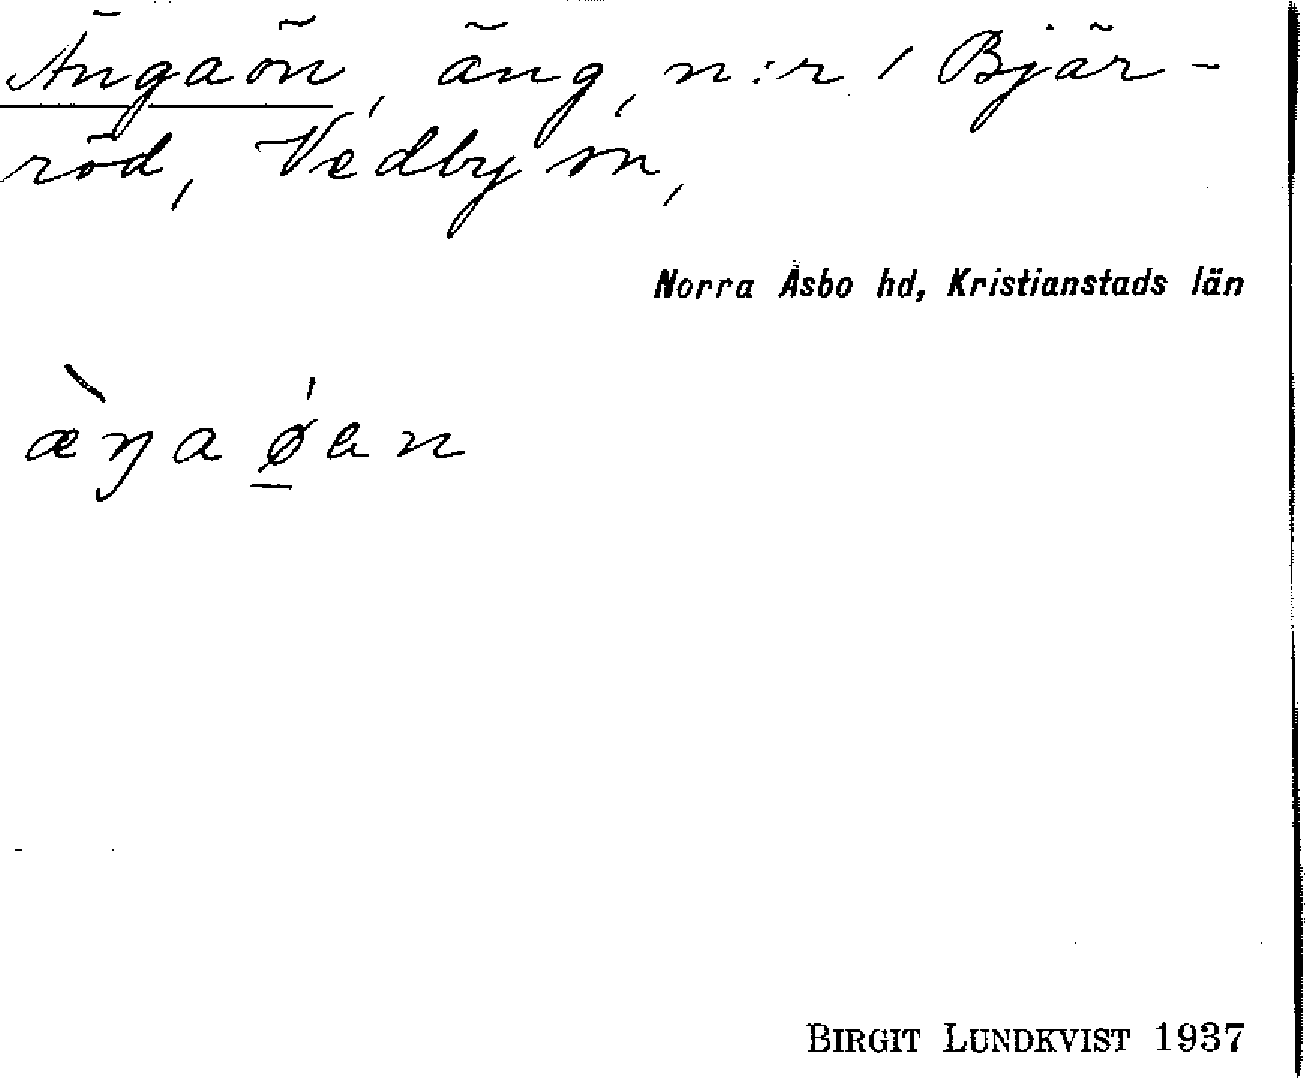 Ängaön, äng, n:r 1 Bjär-
röd, Vedby sn,
Norra Åsbo hd, Kristianstads län
æ̀ŋa ǿ̠en
BIRGIT LUNDKVIST 1937